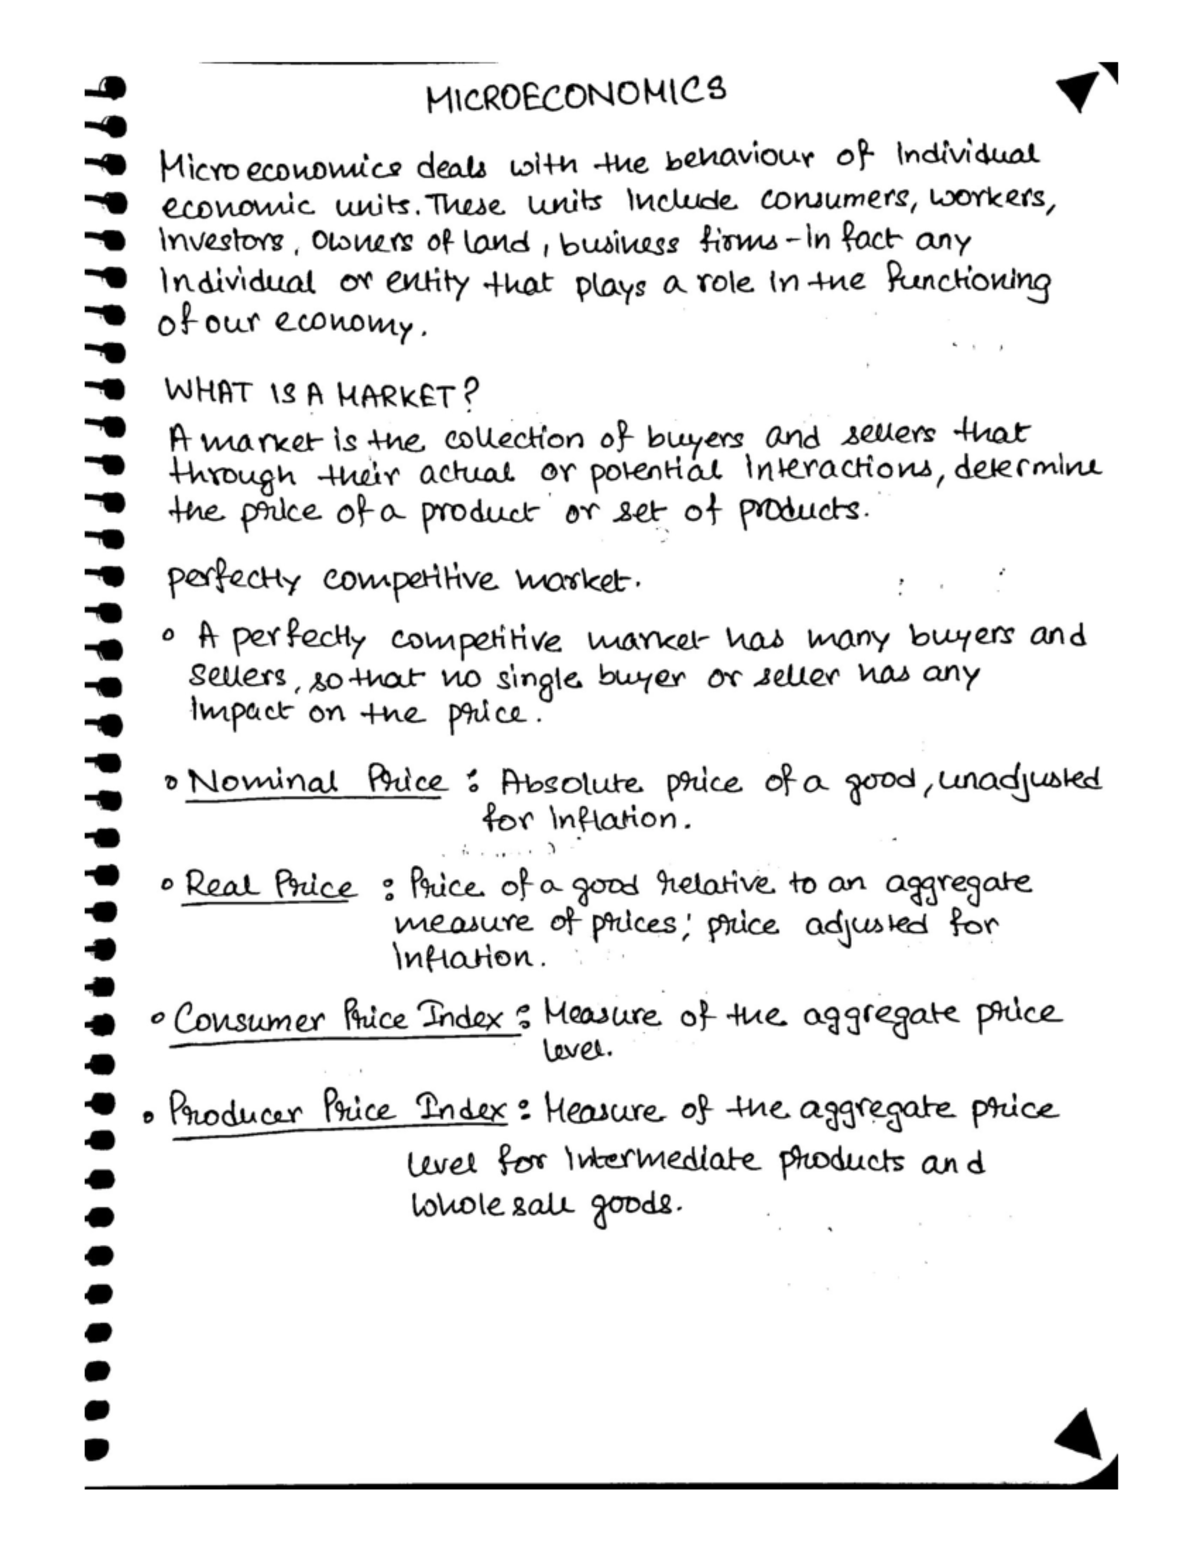 MICROECONOMICS
Microeconomics deals with the behaviour of Individual
economic units. These units Include consumers, workers,
Investors, Owners of land, business firms - In fact any
Individual or entity that plays a role In the functioning
of our economy.
WHAT IS A MARKET?
A market is the collection of buyers and sellers that
through their actual or potential Interactions, determine
the price of a product or set of products.
perfectly competitive market.
◦ A perfectly competitive market has many buyers and
Sellers, so that no single buyer or seller has any
Impact on the price.
◦ Nominal Price : Absolute price of a good, unadjusted
for Inflation.
◦ Real Price : Price of a good relative to an aggregate
measure of prices; price adjusted for
Inflation.
◦ Consumer Price Index : Measure of the aggregate price
level.
◦ Producer Price Index : Measure of the aggregate price
level for Intermediate products and
Wholesale goods.